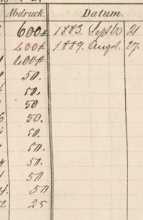 Abdruck. Datum.
600 1883. Septbr 21
400 1889. Augst. 27.
400
50.
50.
50
50.
50.
50.
50.
50.
50
25